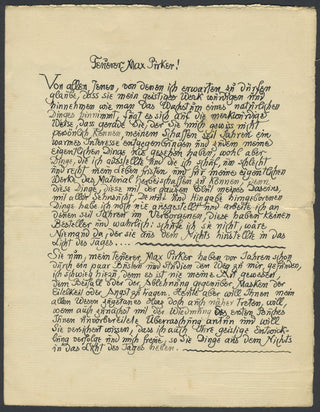 Teuerer, Max Pirker!
Von allen Jenen, von denen ich erwarten zu dürfen
glaube, dass sie mein geistiges Werk würdigen und
hinnehmen wie man das Wachstum eines natürlichen
Dinges hinnimmt, fügt es sich auf die merkwürdige
Weise, dass gerade Sie, der Sie mich gewiss nicht
persönlich kennen, meinem Schaffen seit Jahren ein
warmes Interesse entgegenbringen und indem meine
eigentlichen Dinge nie gesehen haben, wohl aber
Dinge, die ich abstelle und die ich schuf, um schlecht
und recht mein Leben fristen und für meine eigentlichen
Werke das Material bereitschaffen zu können, denn
diese Dinge, diese mit der ganzen Wut meines Daseins,
mit aller Sehnsucht, Demut und Hingabe hingeworfenen
Dinge habe ich noch nie ausgestellt und arbeite ich an
denen seit Jahren im Verborgenen, diese haben keinen
Besteller und wahrlich: schüfe ich sie nicht, wäre
Niemand da, der sie aus dem Nichts hinstellte in das
Licht des Tages....
Sie nun, mein teuerer Max Pirker haben vor Jahren schon
durch ein paar Bücher und Studien den Weg zu mir gefunden,
ich schwieg hiezu, denn es ist nie meine Art gewesen,
dem Beifall oder der Ablehnung gegenüber, Masken der
Eitelkeit oder Angst zu tragen. Heute aber will Ihnen mein
allen Wesen zugetanes Herz doch auch näher treten, will,
wenn auch zunächst mit der Widmung des ersten Buches
Ihnen unvorbereitete Überraschung antun und will
Sie versichert wissen, dass ich auch Ihre geistige Entwick-
lung verfolge und mich freue, so Sie Dinge aus dem Nichts
in das Licht des Tages heben....